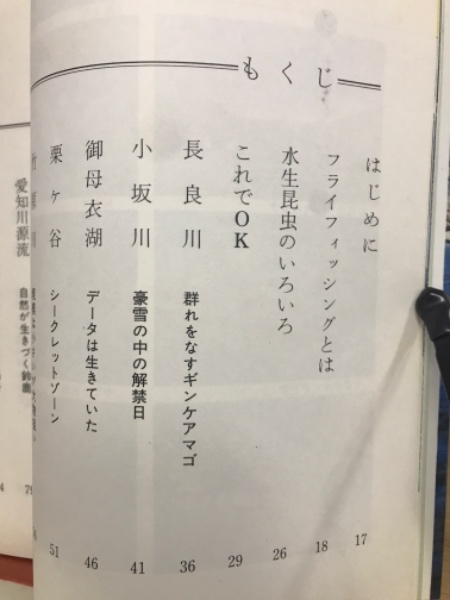 もくじ
はじめに 17
フライフィッシングとは 18
水生昆虫のいろいろ 26
これでOK 29
長良川 群れをなすギンケアマゴ 36
小坂川 豪雪の中の解禁日 41
御母衣湖 データは生きていた 46
栗ヶ谷 シークレットゾーン 51
愛知川源流 自然が生きづく鈴鹿